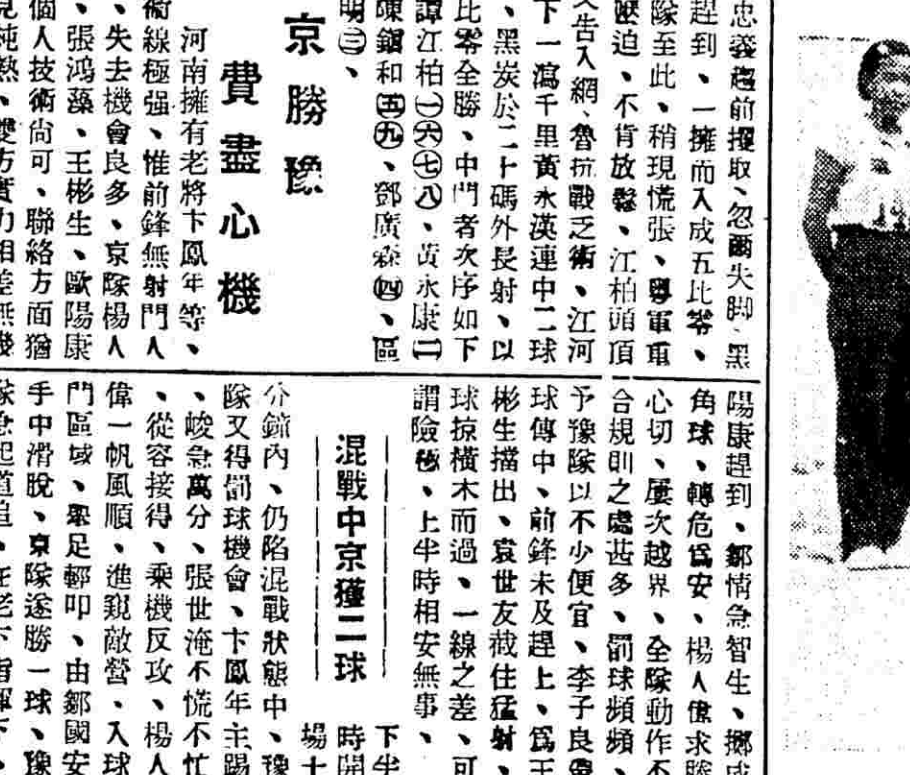 忠義趨前攫取、忽爾失脚、黑
趕到、一擁而入成五比零、
隊至此、稍現慌張、粵軍重
壓迫、不肯放鬆、江柏頭頂
告入網、魯抗戰乏術、江河
下一瀉千里黃永漢連中二球
、黑炭於二十碼外長射、以
比零全勝、中門者次序如下
譚江柏㊀㊅㊆㊇、黃永康㊁
陳鎭和㊄㊈、鄧廣森㊃、區
明㊂、
京勝豫
費盡心機
河南擁有老將卞鳳年等、
衛線極强、惟前鋒無射門人
、失去機會良多、京隊楊人
、張鴻藻、王彬生、歐陽康
個人技術尙可、聯絡方面猶
見純熟、雙方實力相差無幾
陽康趕到、鄒情急智生、擲成
角球、轉危爲安、楊人偉求勝
心切、屢次越界、全隊動作不
合規則之處甚多、罰球頻頻、
予豫隊以不少便宜、李子良
球傳中、前鋒未及趕上、爲王
彬生擋出、袁世友截住猛射、
球掠橫木而過、一線之差、可
謂險極、上半時相安無事、
混戰中京獲二球
下半
時開
場十
分鐘內、仍陷混戰狀態中、豫
隊又得罰球機會、卞鳳年主踢
、峻急萬分、張世淹不慌不忙
、從容接得、乘機反攻、楊人
偉一帆風順、進窺敵營、入球
門區域、擧足輕叩、由鄒國安
手中滑脫、京隊遂勝一球、豫
隊急起道追、在老卞指揮下、